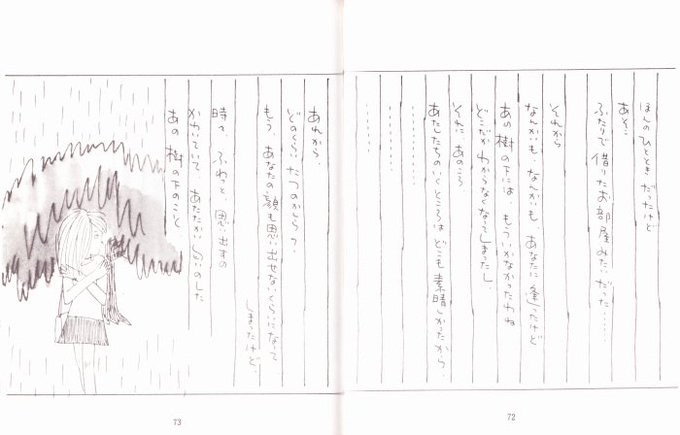 ほんのひとときだったけど
あそこ
ふたりで借りたお部屋みたいだった……
それから
なんかいも なんかいも、あなたに逢ったけど
あの樹の下には、もういかなかったわね
どこだかわからなくなってしまったし、
それに あのころ
あたしたちのいくところは どこも素晴しかったから、
…………
…………
あれから、
どのくらいたつのかしら?
もう、あなたの顔も思い出せないくらいになって
しまったけど、
時々、ふわっと、思い出すの
かわいていて あたたかい匂いのした
あの 樹の下のこと
72
73